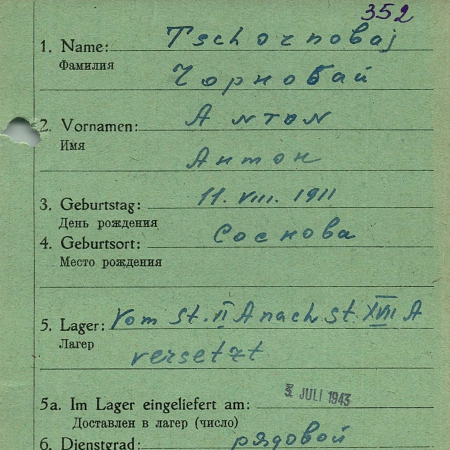 352
1. Name: Tschornobaj
Фамилия Чорнобай
2. Vornamen: Anton
Имя Антон
3. Geburtstag: 11. VIII. 1911
День рождения
4. Geburtsort: Соснова
Место рождения
5. Lager: Vom St. II A nach St. XVII A
Лагер versetzt
5a. Im Lager eingeliefert am: 3. JULI 1943
Доставлен в лагер (число)
6. Dienstgrad: рядовой